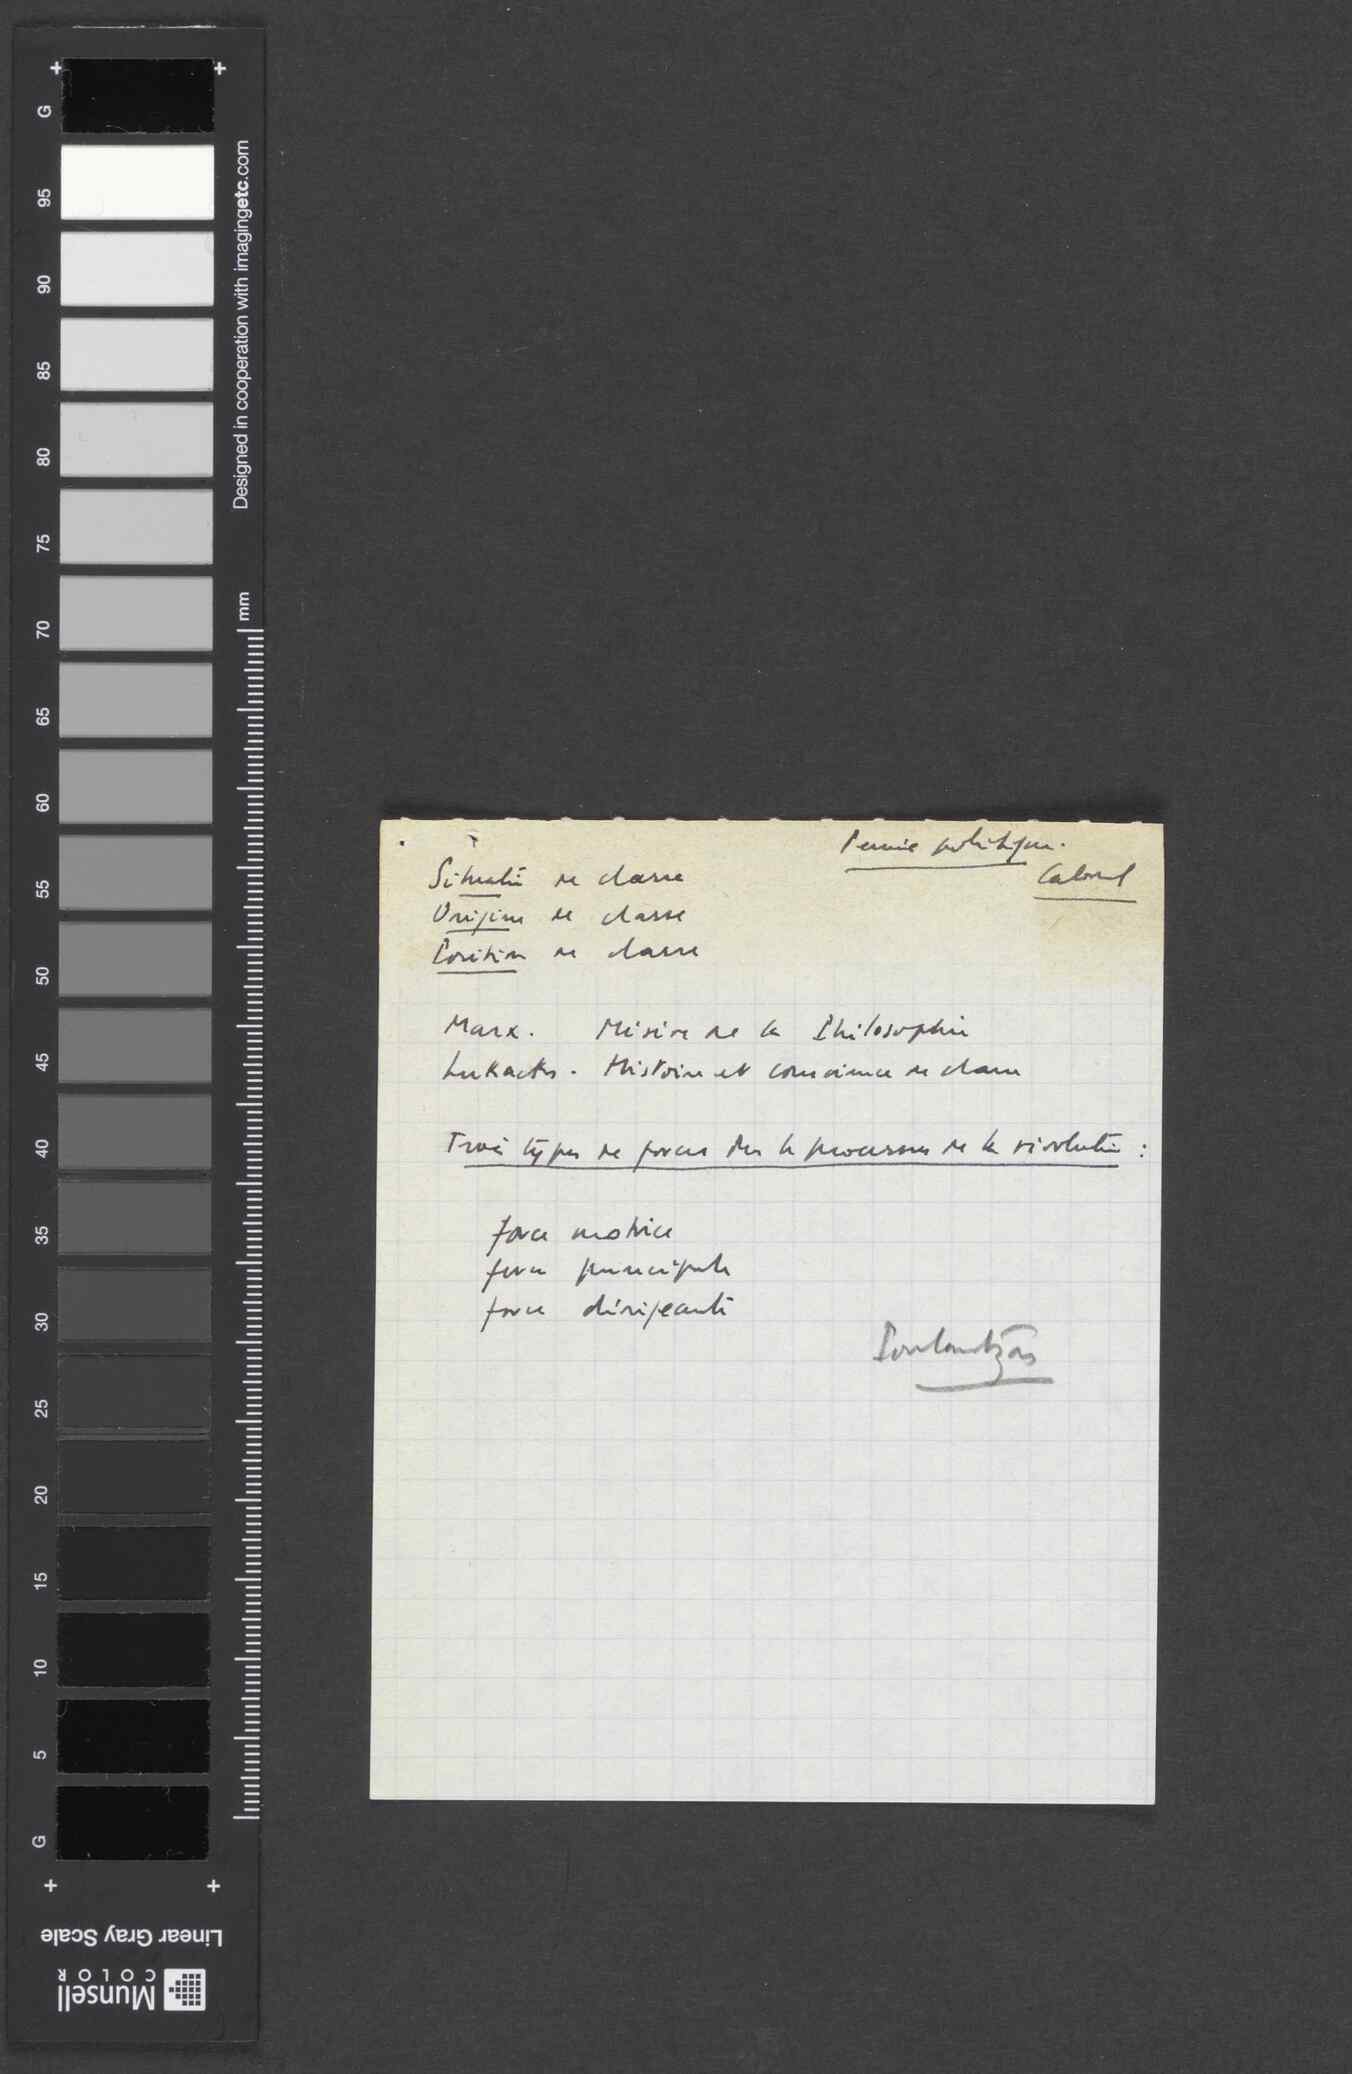 G
95
90
85
80
75
70
65
60
55
50
45
40
35
30
25
20
15
10
5
G
Designed in cooperation with imagingetc.com
mm
Linear Gray Scale
Munsell
COLOR
Pensée politique.
Cabral
Situation de classe
Origine de classe
Position de classe
Marx. Misère de la Philosophie
Lukacks. Histoire et conscience de classe
Trois types de forces ds le processus de la révolution :
force motrice
force principale
force dirigeante
Poulantzas